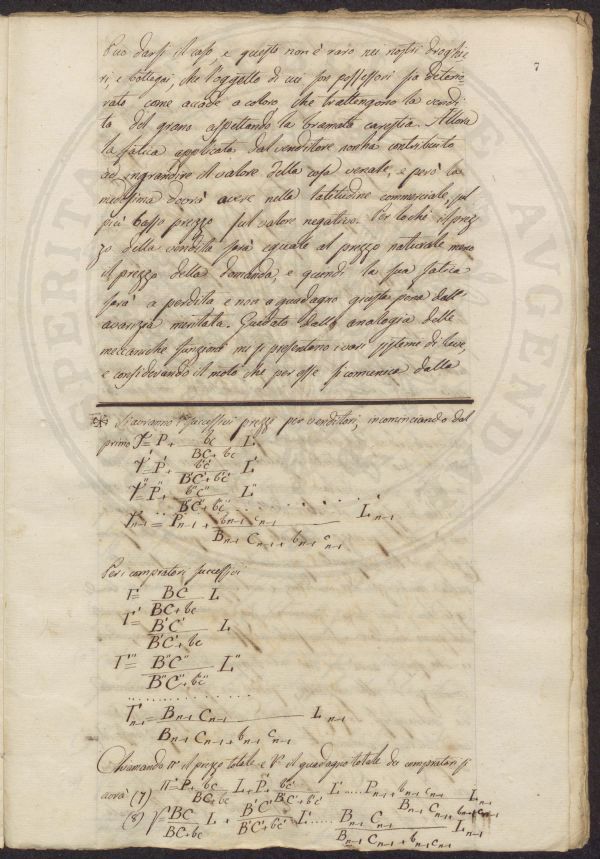 7
Può darsi il caso e questo non è raro nei nostri droghie
ri, e bottegai, che l'oggetto di cui son possessori sia deterio
rato come accade a coloro, che trattengono la vendi
ta del grano aspettando la bramata carestia. Allora
la fatica applicata dal venditore non ha contribuito
ad ingrandire il valore della cosa venale, e però la
medesima dovrà avere nella latitudine commerciale, sul
più basso prezzo sul valore negativo. Per lochè il prez
zo della vendita sarà eguale al prezzo naturale meno
il prezzo della domanda, e quindi la sua fatica
sarà a perdita e non a guadagno giusta pena dell'
avarizia meritata. Guidato dalla analogia delle
meccaniche funzioni mi si presentono i vari sistemi di leve,
e considerando il moto che per esse si comunica dalla
Si avranno i successivi prezzi per venditori, incominciando dal
primo P + bc L
BC + bc
P' + b'c' L'
B'C' + b'c'
P'' + b''c'' L''
B''C'' + b''c''
P n-1 + b n-1 c n-1 L n-1
B n-1 C n-1 + b n-1 c n-1
Per i compratori successivi
Γ = BC L
BC + bc
Γ' = B'C' L
B'C' + bc
Γ'' = B''C'' L''
B''C'' + b''c''
..............
Γ n-1 = B n-1 C n-1 L n-1
B n-1 C n-1 + b n-1 c n-1
Chiamando π il prezzo totale e il guadagno totale dei compratori si
avrà (7) π = P + bc L + P' + b'c' L' ..... P n-1 + b n-1 c n-1 L n-1
BC + bc B'C' + b'c' B n-1 C n-1 + b n-1 c n-1
(8) BC L + B'C' L' ..... B n-1 C n-1 L n-1
BC + bc B'C' + b'c' B n-1 C n-1 + b n-1 c n-1